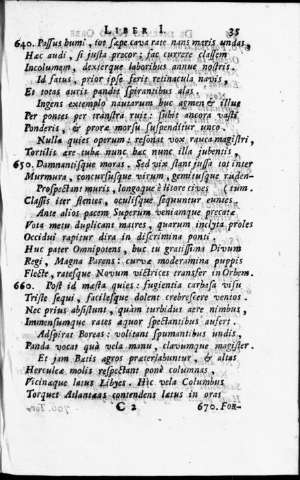 LIBER I. 35
640. Passus humi, tot sæpe cava rate nans maris undas,
Hac audi, si justa precor: fac currere classem
Incolumem, dexterque laboribus annue nostris.
Id fatus, prior ipse ferit retinacula navis,
Et totas auris pandit spirantibus alas.
Ingens extemplo nautarum huc agmen & illuc
Per pontes per transtra ruit: subit ancora vasti
Ponderis, & proræ morsu suspenditur unco.
Nulla quies operum: resonat vox rauca magistri,
Tortilis ære tuba nunc hæc nunc illa jubenti,
650. Damnantisque moras. Sed vix stant jussa tot inter
Murmura, concursusque virum, gemitusque ruden-
Prospectant muris, longaque è litore cives ( tum.
Classis iter flentes, oculisque sequuntur euntes.
Ante alios pacem Superum veniamque precatæ
Vota metu duplicant matres, quarum inclyta proles
Occidui rapitur dira in discrimina ponti.
Huc pater Omnipotens, huc tu gratissima Divum
Regi, Magna Parens: curvæ moderamina puppis
Flecte, ratesque Novum victrices transfer in Orbem.
660. Post id mæsta quies: fugientia carbasa visu
Triste sequi, facilesque dolent crebrescere ventos.
Nec prius absistunt, quàm turbidus aere nimbus,
Immensumque rates æquor spectantibus aufert.
Adspirat Boreas: volitant spumantibus undis,
Panda vocat quà vela manu, clavumque magister.
Et jam Bætis agros præteriabuntur, & altas
Herculeæ molis respectant ponè columnas,
Vicinæque latus Libyes. Hîc vela Columbus
Torquet Atlantæas contendens latus in oras
C 2 670. FOR-